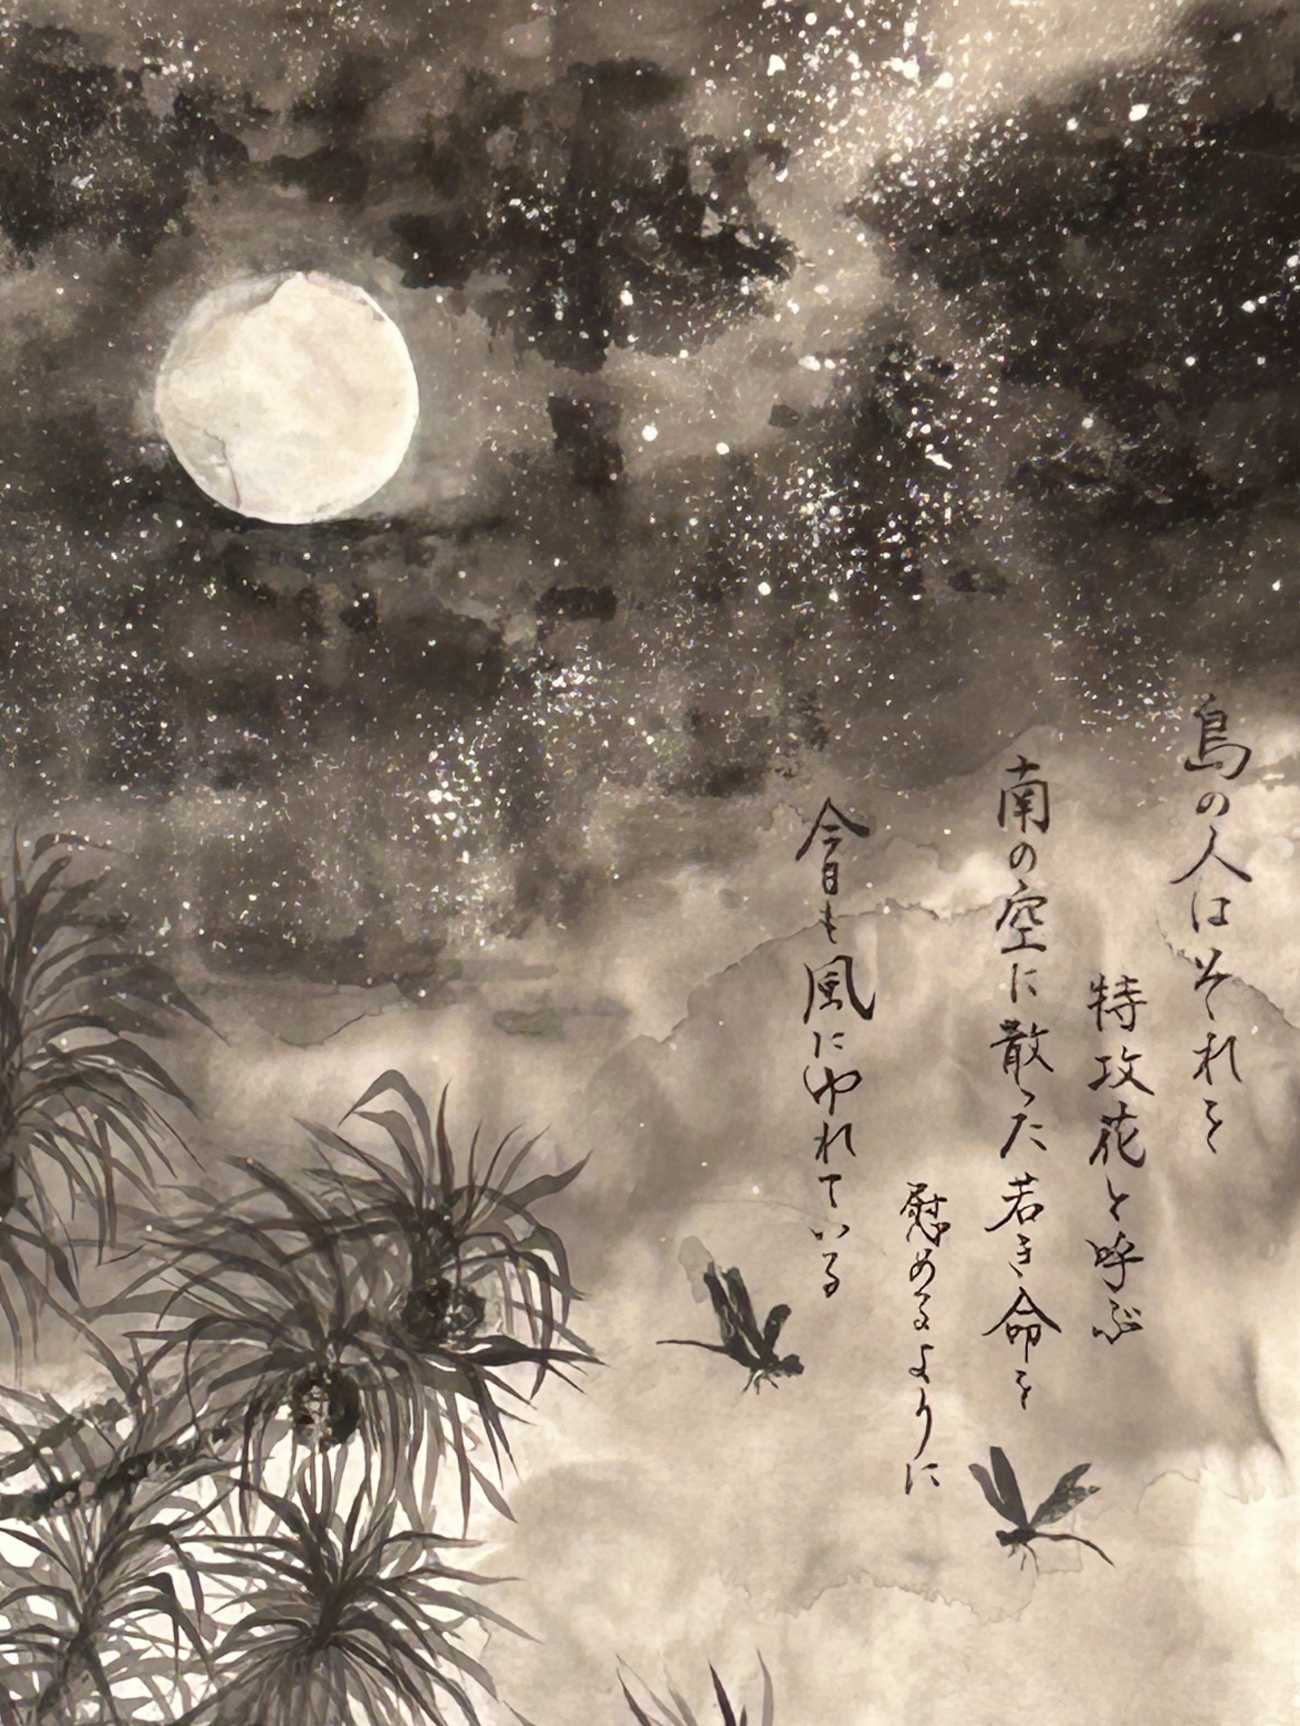 島の人はそれを
特攻花と呼ぶ
南の空に散った若き命を
慰めるように
今日も風にゆれている